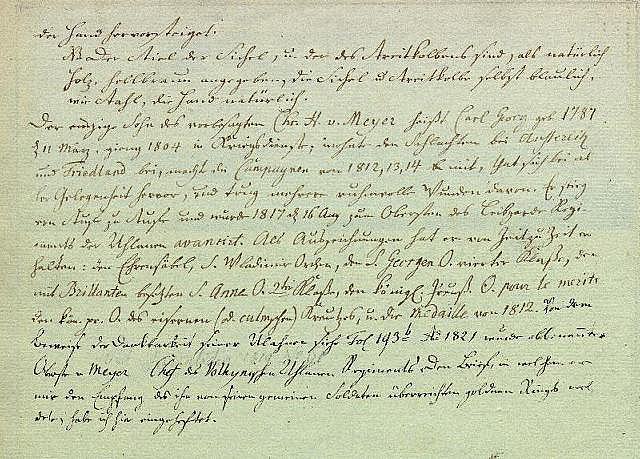 der Hand hervorsteiget.
NB Der Stiel der Sichel, u. der des Streitkolbens sind, als natürlich
Holz, hellbraun angegeben, die Sichel u Streitkolbe selbst blaulich,
wie Stahl, die Hand natürlich.
Der einzige Sohn des vorbesagten Chr. H. v. Meyer heißt Carl Georg geb 1787
d 11 März, gieng 1804 in Kriegsdienste, wohnte den Schlachten bei Austerlitz
und Friedland bei, machte die Campagnen von 1812, 13, 14 mit, that sich bei al
ler Gelegenheit hervor, und trug mehrere ruhmvolle Wunden davon. Er stieg
von Stufe zu Stufe und wurde 1817 d 16 Aug zum Obersten des Leibgarde Regi
ments der Uhlanen avancirt. Als Auszeichnungen hat er von Zeit zu Zeit er
halten: den Ehrensäbel, S. Wladimir Orden, den S. Georgen O. vierter Klaße, den
mit Brillanten besetzten S. Anne O. 2ter Klaße, den königl. Preuß. O. pour le merite
den kön. pr. O. des eisernen (od. culmschen) Kreutzes, u. die Medaille von 1812. Von dem
Beweise der Dankbarkeit seiner Uhlanen sieh Fol 193b Ao 1821 wurde obbenannter
Oberste v Meyer Chef des Volhynischen Uhlanen Regiments. Den Brief, in welchem er
mir den Empfang des ihm von seinen gemeinen Soldaten überreichten goldnen Rings mel
dete, habe ich hier eingeheftet.